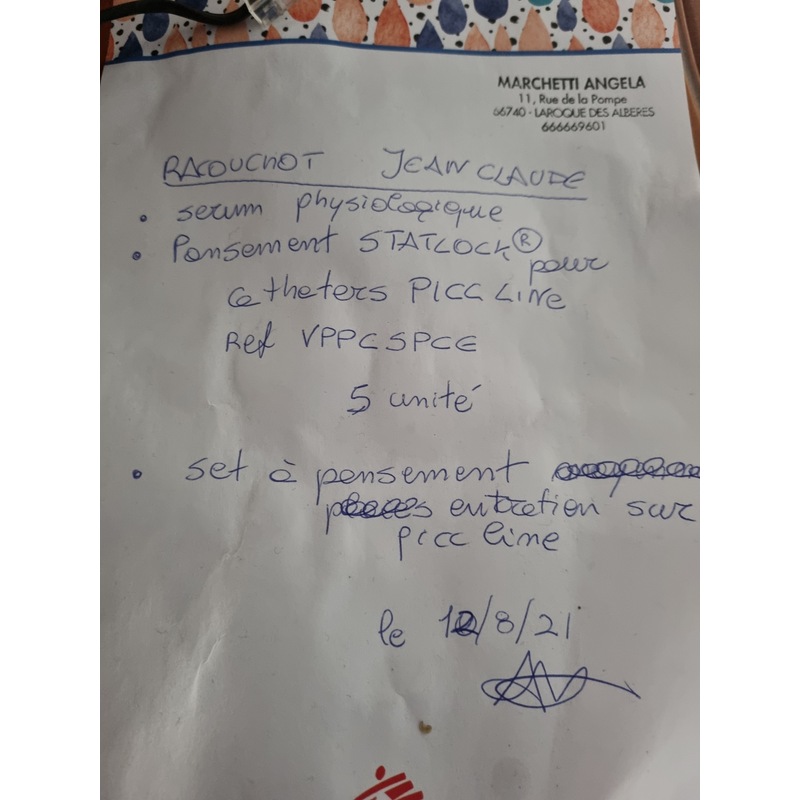 MARCHETTI ANGELA
11, Rue de la Pompe
66740 - LAROQUE DES ALBERES
666669601
RACOUCHOT JEAN CLAUDE
• serum physiologique
• Pansement STATLOCK® pour
catheters PICC LINE
Ref VPPCSPCE
5 unité
• set à pansement
entretien sur
picc line
le 12/8/21